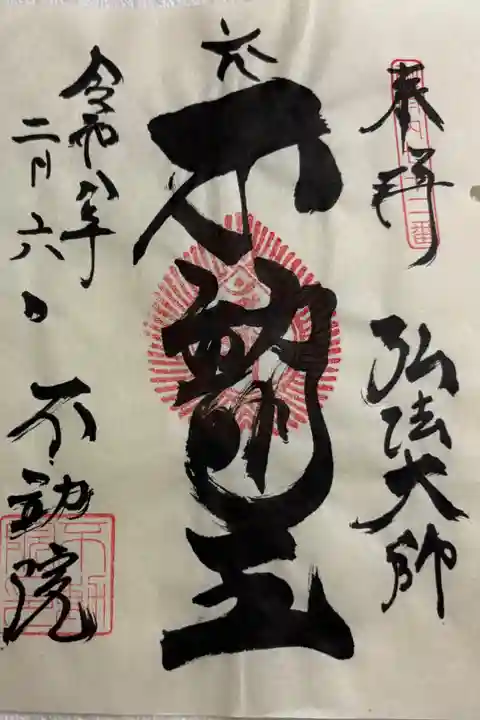 奉拝
二番
弘法大師
不動明王
令和八年
二月六日
不動院